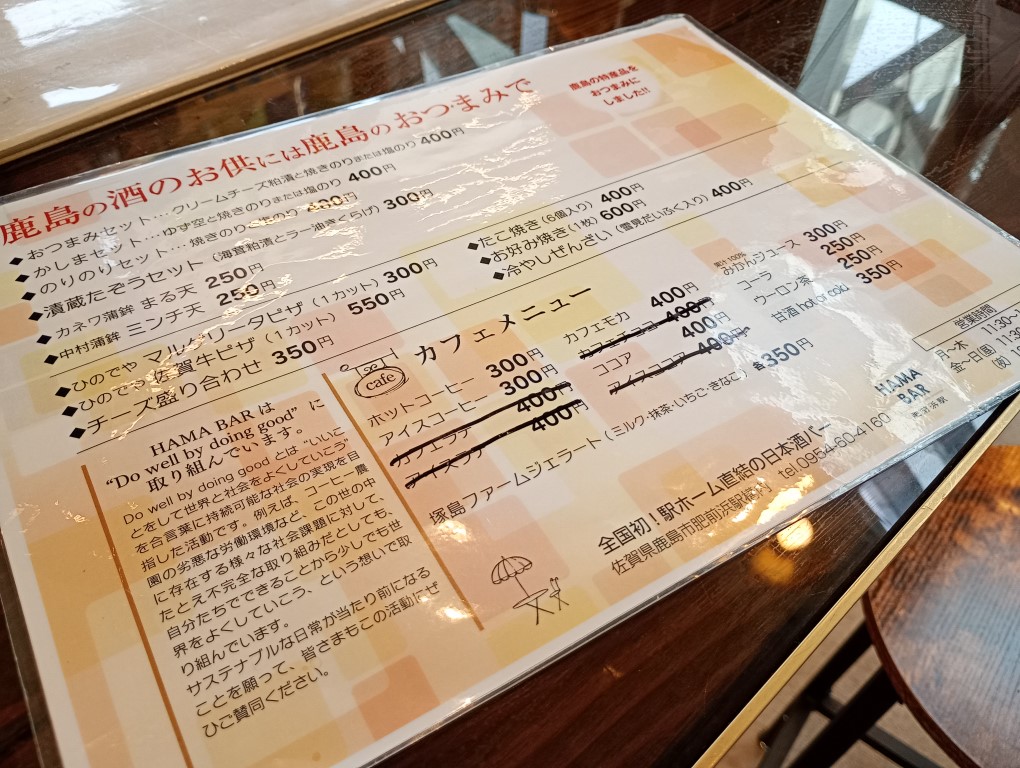 鹿島の酒のお供には鹿島のおつまみで
鹿島の特産品を
おつまみに
しました!!
◆おつまみセット…クリームチーズ粕漬と焼きのりまたは塩のり 400円
◆かしまセット…ゆず空と焼きのりまたは塩のり 400円
◆のりのりセット…焼きのりと塩のり 200円
◆漬蔵たぞうセット(海茸粕漬とラー油きくらげ) 300円
◆カネワ蒲鉾 まる天 250円
◆中村蒲鉾 ミンチ天 250円
◆ひのでや マルゲリータピザ(1カット) 300円
◆ひのでや 佐賀牛ピザ(1カット) 550円
◆チーズ盛り合わせ 350円
◆たこ焼き(6個入り) 400円
◆お好み焼き(1枚) 600円
◆冷やしぜんざい(雪見だいふく入り) 400円
cafe
カフェメニュー
ホットコーヒー 300円
アイスコーヒー 300円
カフェラテ 400円
アイスラテ 400円
カフェモカ 400円
カフェチョコ 400円
ココア 400円
アイスココア 400円
塚島ファームジェラート(ミルク・抹茶・いちご・きなこ) 各350円
果汁100%
みかんジュース 300円
コーラ 250円
ウーロン茶 250円
甘酒 hot or cold 350円
HAMA BAR は
“Do well by doing good” に
取り組んでいます。
Do well by doing good とは “いいこ
とをして世界と社会をよくしていこう”
を合言葉に持続可能な社会の実現を目
指した活動です。例えば、コーヒー農
園の劣悪な労働環境など、この世の中
に存在する様々な社会課題に対して、
たとえ不完全な取り組みだとしても、
自分たちでできることから少しでも世
界をよくしていこう、という想いで取
り組んでいます。
サステナブルな日常が当たり前になる
ことを願って、皆さまもこの活動にぜ
ひご賛同ください。
全国初!駅ホーム直結の日本酒バー
佐賀県鹿島市肥前浜駅構内 tel.0954-60-4160
HAMA
BAR
肥前浜駅
営業時間
月〜木 11:30〜
金〜日(祝) 11:3